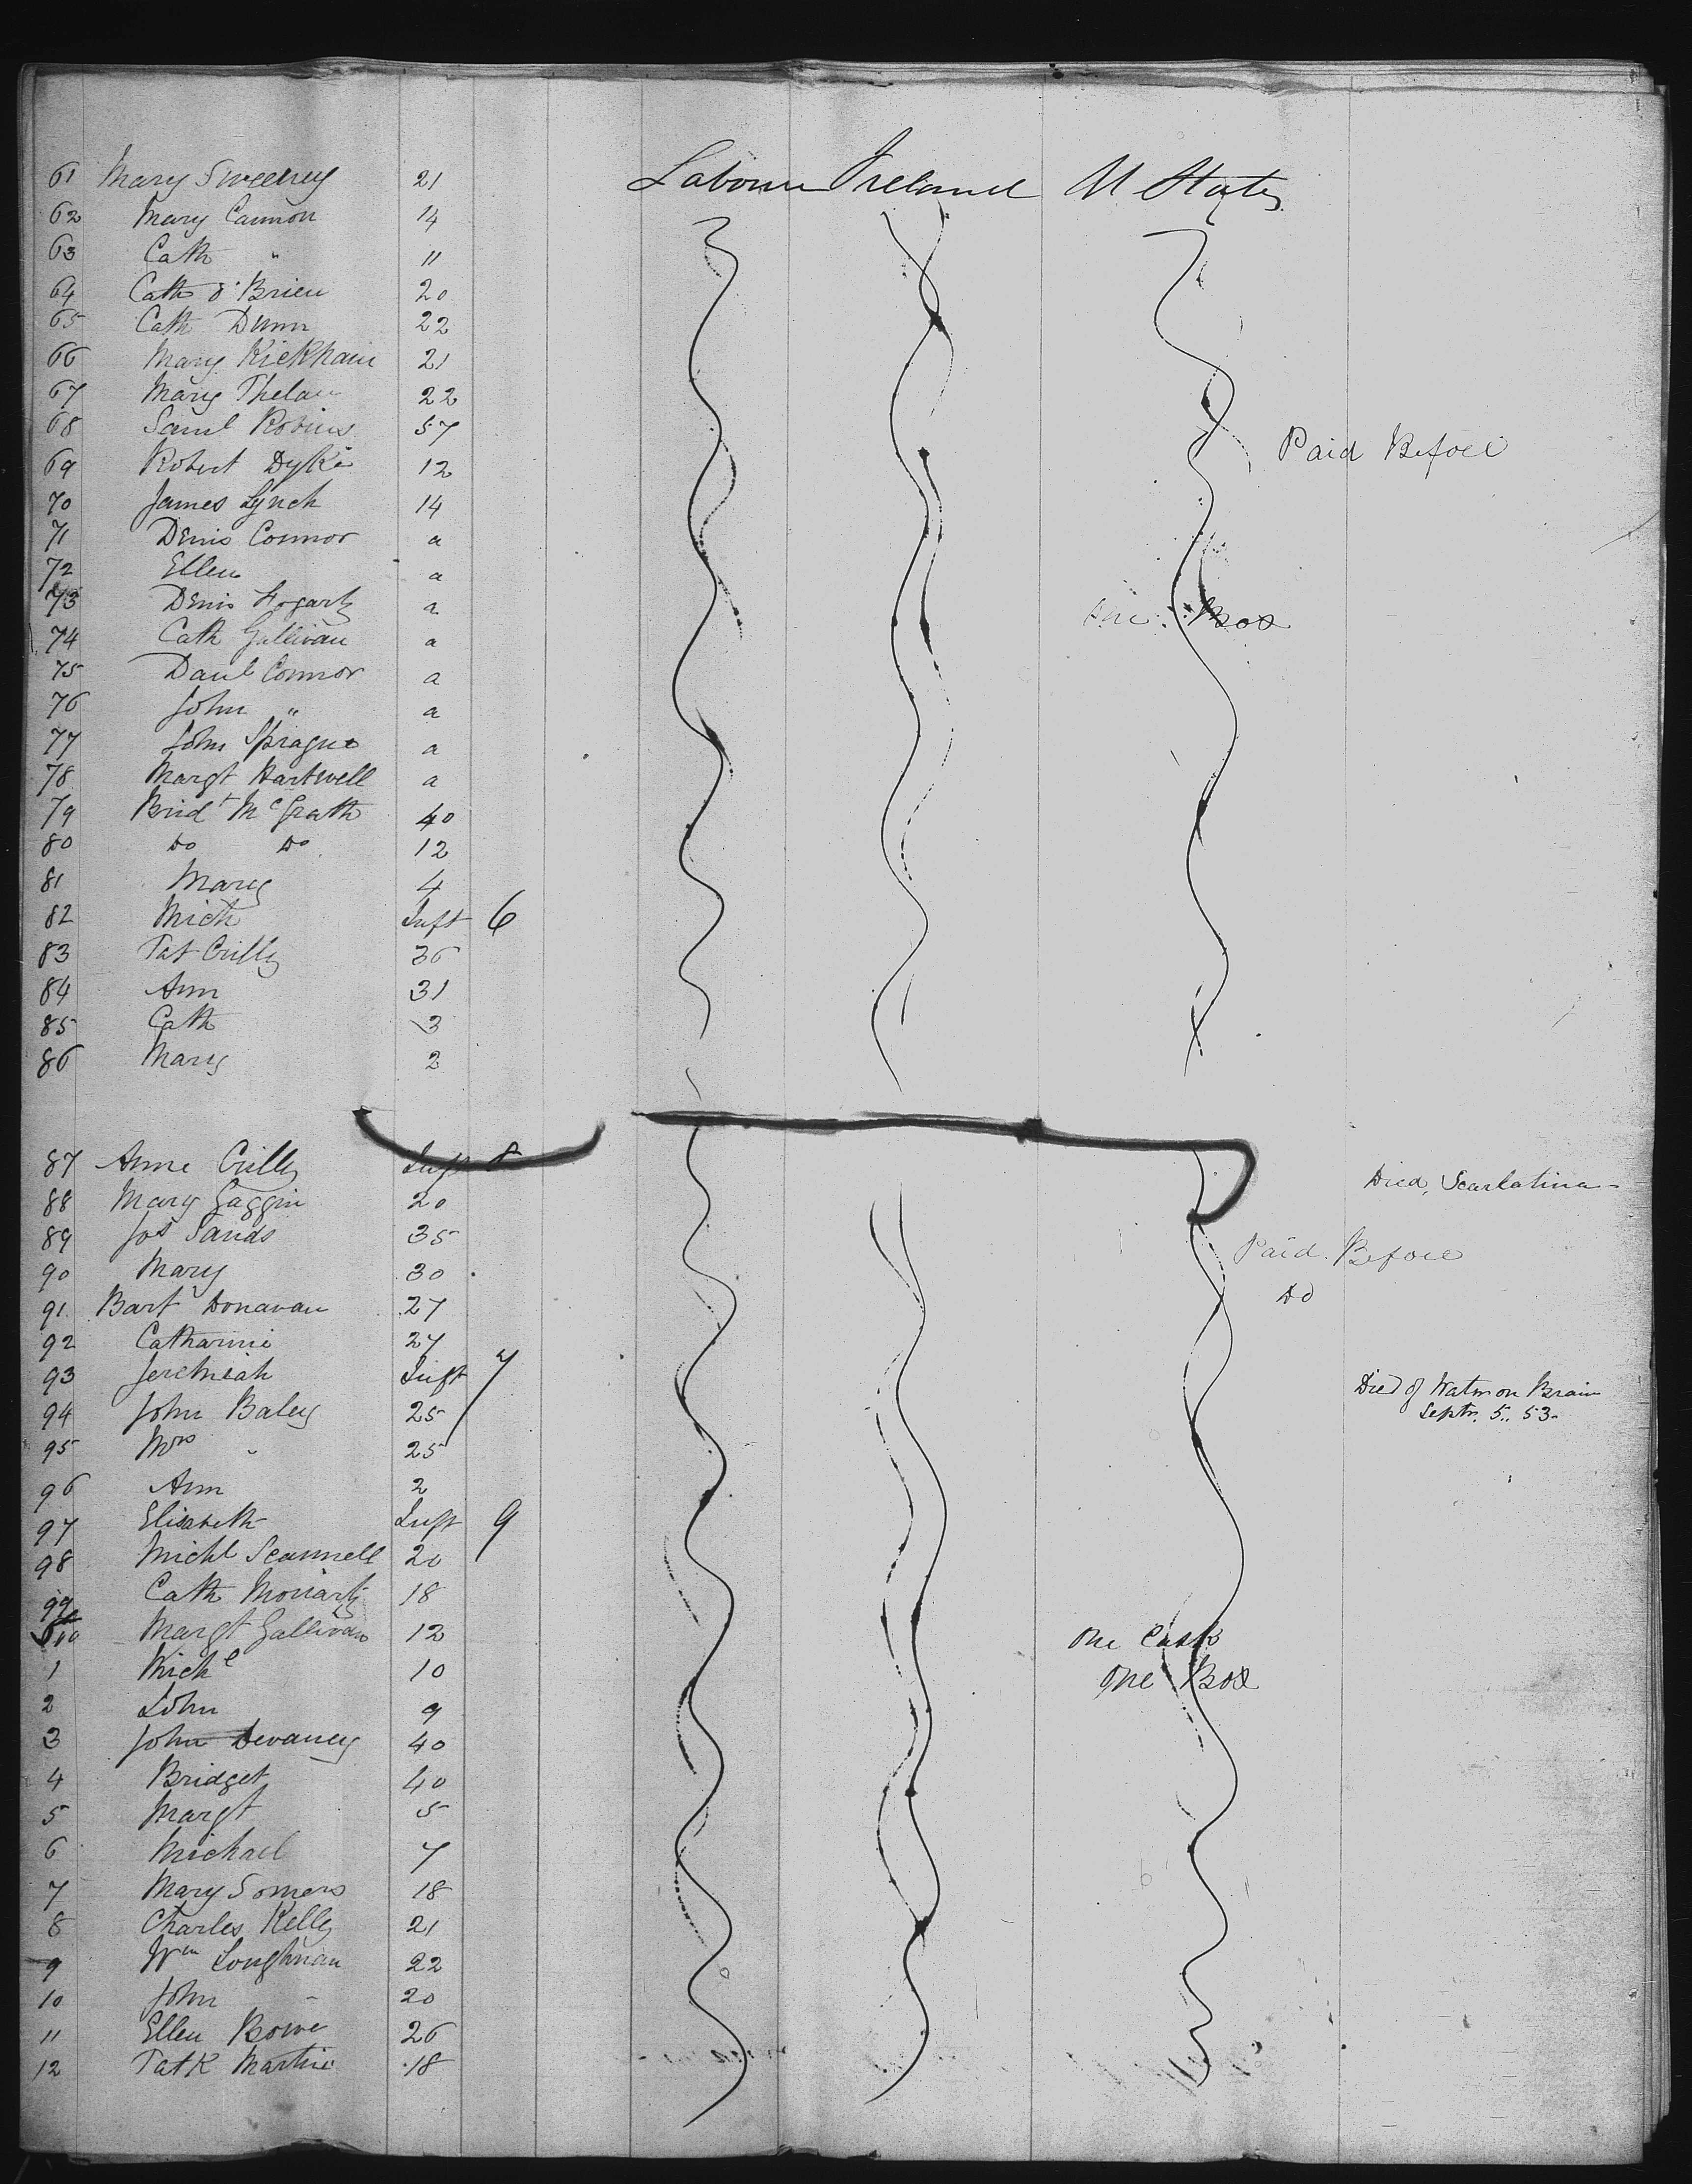 61 Mary Sweeney 21 Labour Ireland U States
62 Mary Cannon 14
63 Cath " 11
64 Cath O'Brien 20
65 Cath Dunn 22
66 Mary Kickham 21
67 Mary Phelan 22
68 Saml Robins 57 Paid Before
69 Robert Dyke 12
70 James Lynch 14
71 Denis Connor a
72 Ellen a
73 Denis Fogarty a One Box
74 Cath Gallivan a
75 Danl Connor a
76 John " a
77 John Sprague a
78 Margt Hartwell a
79 Bridt McGrath 40
80 Do Do 12
81 Mary 4
82 Mich Inft 6
83 Pat Crilly 36
84 Ann 31
85 Cath 3
86 Mary 2
87 Anne Crilly Inft 8 Died, Scarlatina
88 Mary Gaggin 20
89 Jos Sands 35 Paid Before
90 Mary 30 Do
91 Bart Donavan 27
92 Catharine 27
93 Jeremiah Inft 7 Died of Watr on Brain
94 John Baley 25 Septr. 5.. 53
95 Mrs " 25
96 Ann 2
97 Elisabeth Inft 9
98 Michl Scannell 20
99 Cath Moriarty 18
Margt Gallivan 12 One Cask
1 Michl 10 One Box
2 John 9
3 John Devaney 40
4 Bridget 40
5 Margt 5
6 Michael 7
7 Mary Somers 18
8 Charles Kelly 21
9 Wm Loughnan 22
10 John " 20
11 Ellen Bowe 26
12 Patk Martin 18